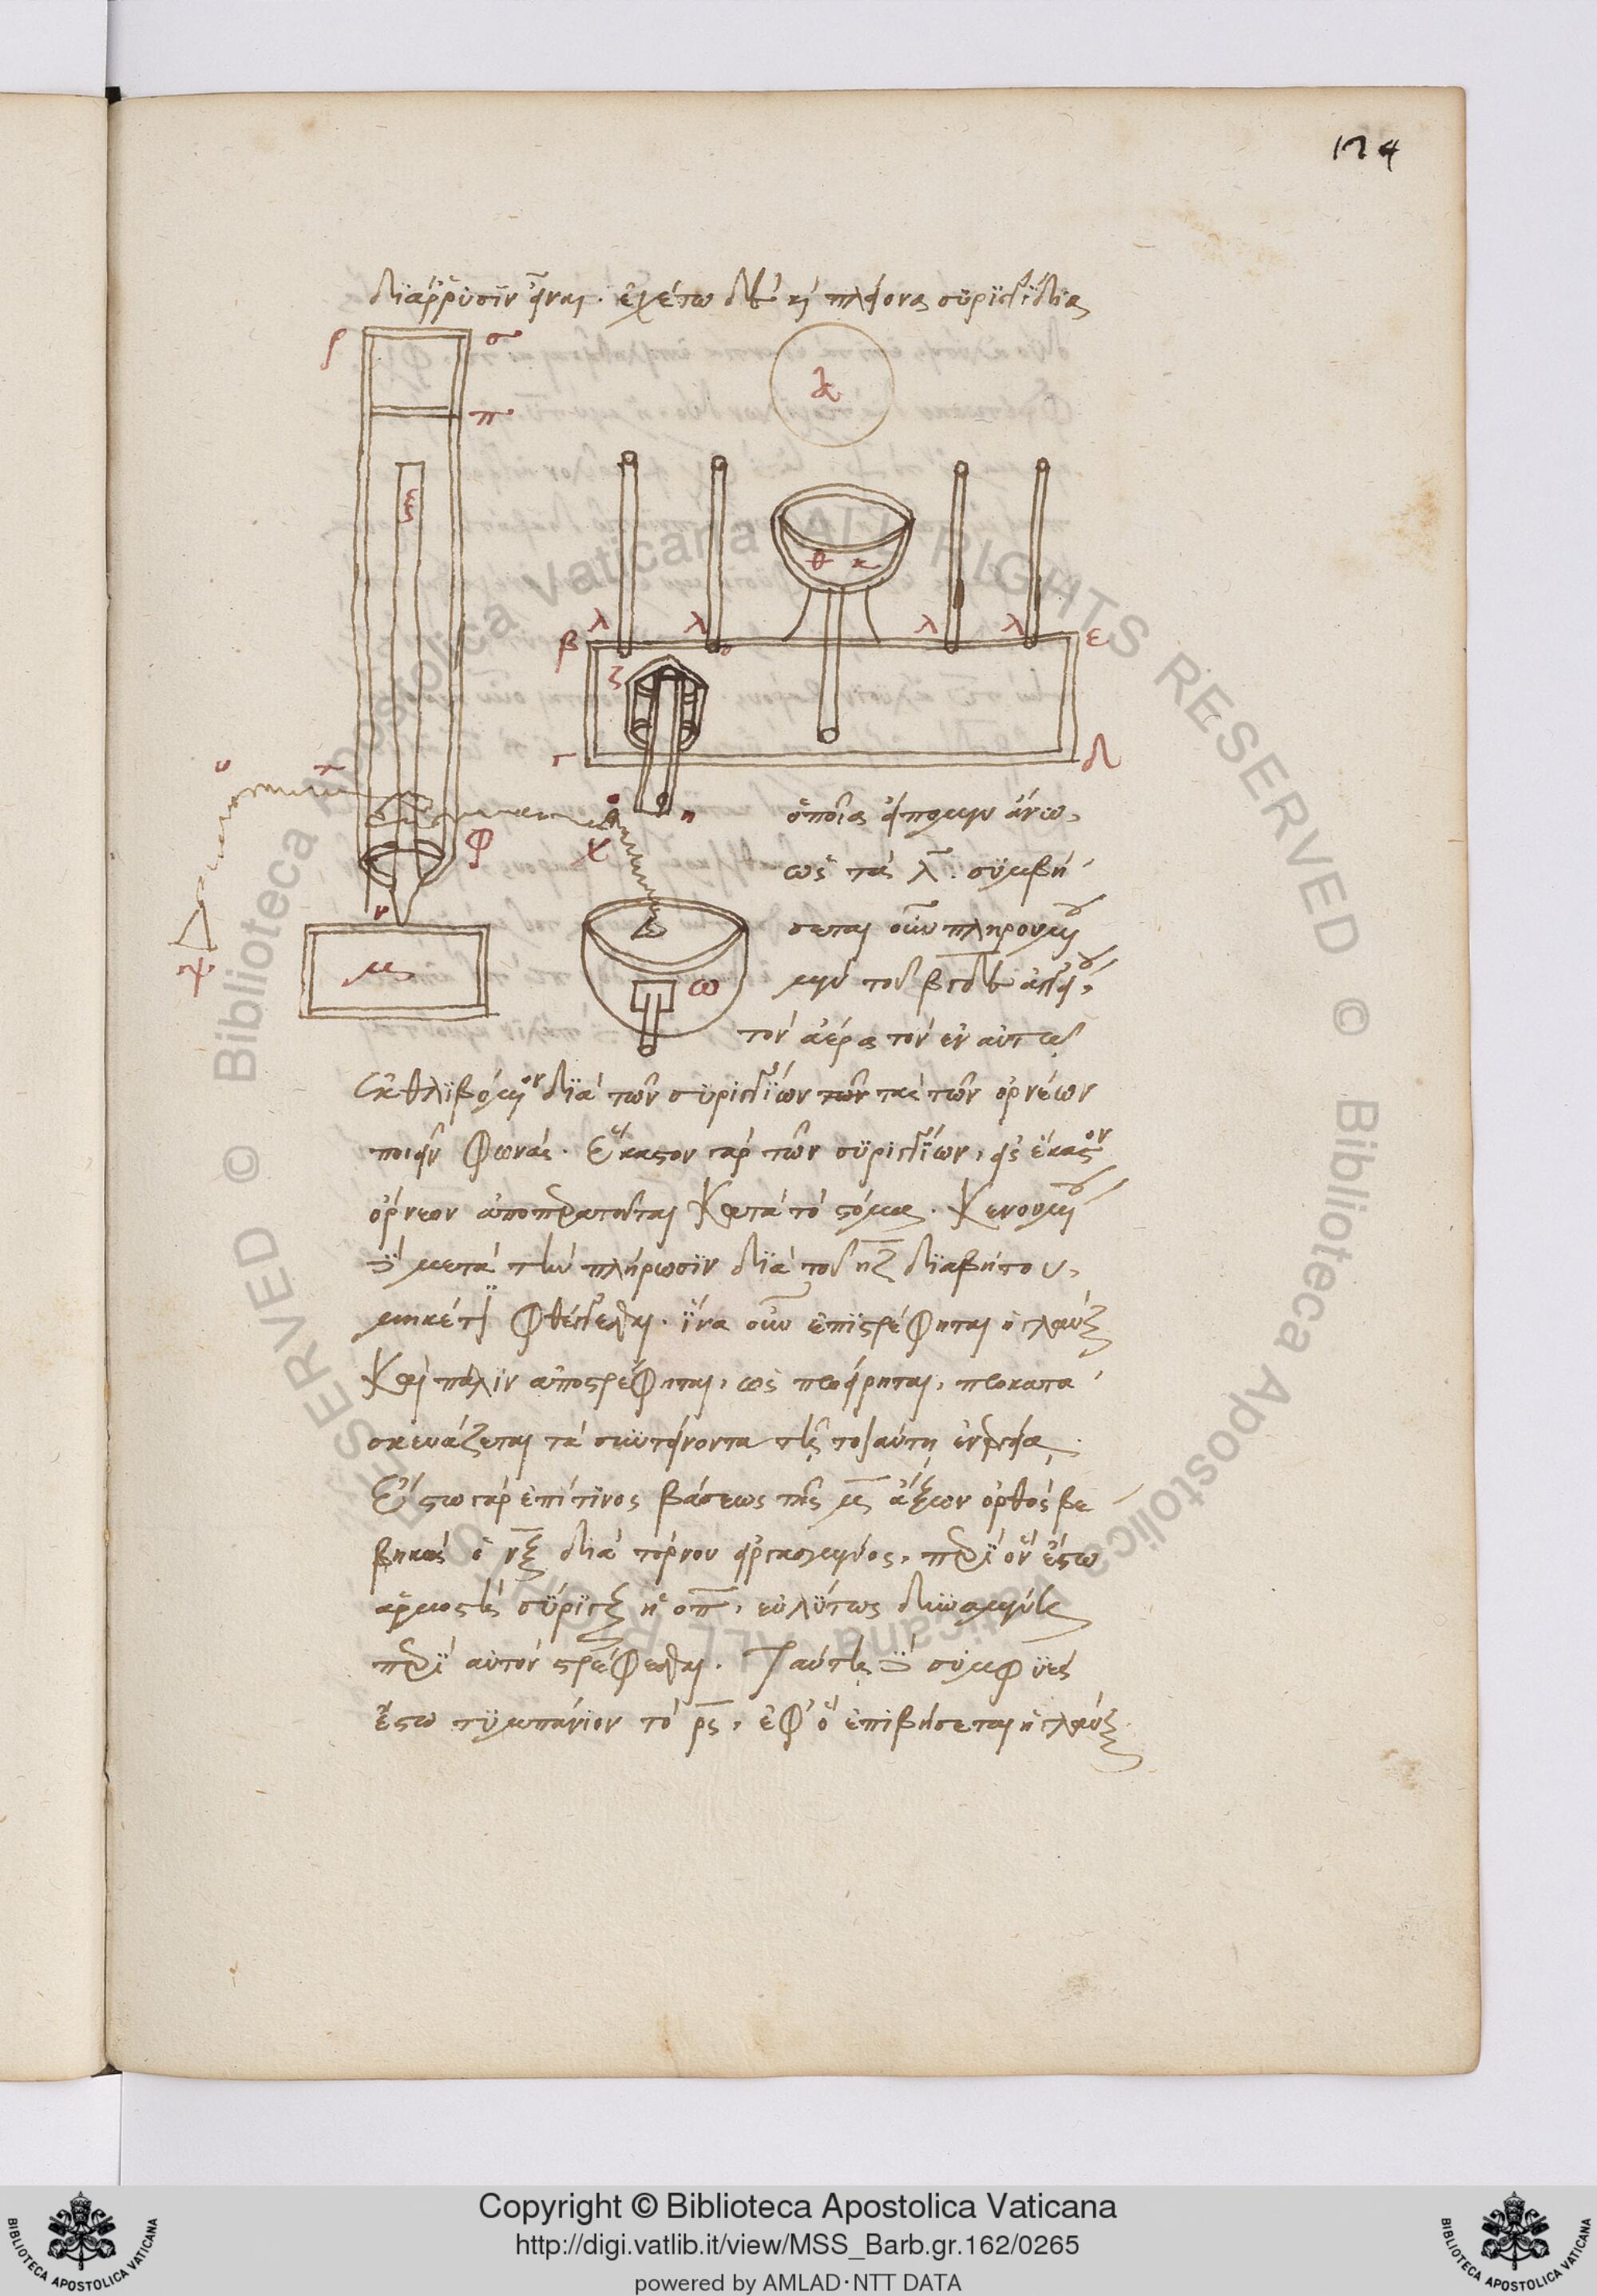 124
διάρρυσιν εἶναι. ἐχέτω δὲ καὶ πλείονα συρίγγια
ρ σ
π
ξ
λ
θ κ
β λ λ λ λ ε
ζ
γ δ
υ τ
φ χ η
ὁποῖα εἴπομεν ἄνω,
ὡς τὰ λ̅. συμβή
ψ ν μ ω
σεται οὖν πληρουμένου
μὲν τοῦ βγδε ἀγγείου,
τὸν ἀέρα τὸν ἐν αὐτῷ
ἐκθλιβόμενον διὰ τῶν συριγγίων τὰς τῶν ὀρνέων
ποιεῖν φωνάς. ἕκαστον γὰρ τῶν συριγγίων, εἰς ἕκαστον
ὄρνεον ἀποπερατοῦται κατὰ τὸ στόμα. κενουμένου
δὲ μετὰ τὴν πλήρωσιν διὰ τοῦ ηζ διαβήτου,
μηκέτι φθέγγεσθαι. ἵνα οὖν ἐπιστρέφηται ἡ γλαὺξ
καὶ πάλιν ἀποστρέφηται, ὡς προείρηται, προκατα
σκευάζεται τὰ συντείνοντα τῇ τοιαύτῃ ἐνεργείᾳ.
ἔστω γὰρ ἐπί τινος βάσεως τῆς μ̅ ἄξων ὀρθὸς βε
βηκὼς ὁ ν̅ξ̅ διὰ τόρνου εἰργασμένος, περὶ ὃν ἔστω
ἁρμοστὴ σύριγξ ἡ οπ̅, εὐλύτως δυναμένη
περὶ αὐτὸν στρέφεσθαι. ταύτῃ δὲ συμφυὲς
ἔστω τυμπάνιον τὸ ρς̅, ἐφ' ὃ ἐπιβήσεται ἡ γλαὺξ
© Biblioteca Apostolica Vaticana ALL RIGHTS RESERVED
© Biblioteca Apostolica Vaticana ALL RIGHTS RESERVED
BIBLIOTECA APOSTOLICA VATICANA
Copyright © Biblioteca Apostolica Vaticana
http://digi.vatlib.it/view/MSS_Barb.gr.162/0265
powered by AMLAD·NTT DATA
BIBLIOTECA APOSTOLICA VATICANA